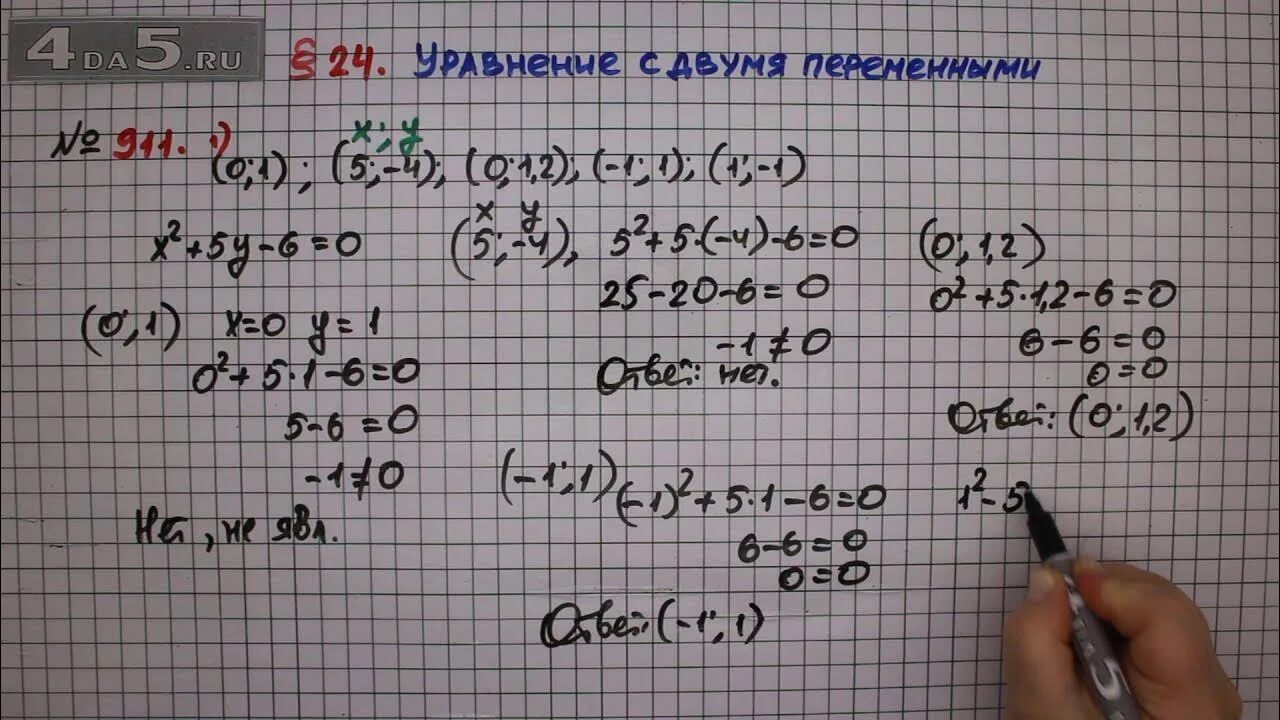 4DA5.RU
§ 24. Уравнение с двумя переменными
№ 911. 1)
x; y
(0;1); (5;-4); (0;1,2); (-1;1); (1;-1)
x²+5y-6=0
(0;1) x=0 y=1
0²+5·1-6=0
5-6=0
-1≠0
Нет, не явл.
x y
(5;-4), 5²+5·(-4)-6=0
25-20-6=0
-1≠0
Ответ: нет.
(0;1,2)
0²+5·1,2-6=0
6-6=0
0=0
Ответ: (0;1,2)
(-1;1) (-1)²+5·1-6=0
6-6=0
0=0
Ответ: (-1;1)
1²-5